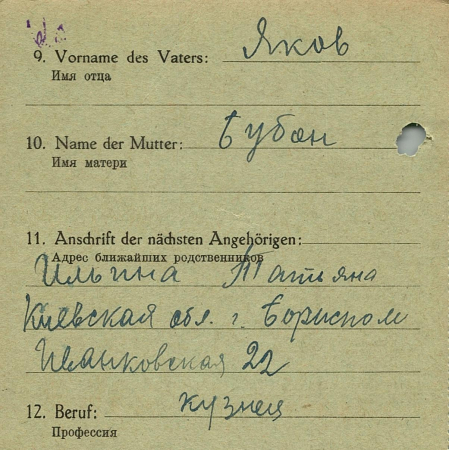 9. Vorname des Vaters: Яков
Имя отца
10. Name der Mutter: Бубон
Имя матери
11. Anschrift der nächsten Angehörigen:
Адрес ближайших родственников
Ильина Татьяна
Киевская обл. г. Борисполь
Иванковская 22
12. Beruf: кузнец
Профессия